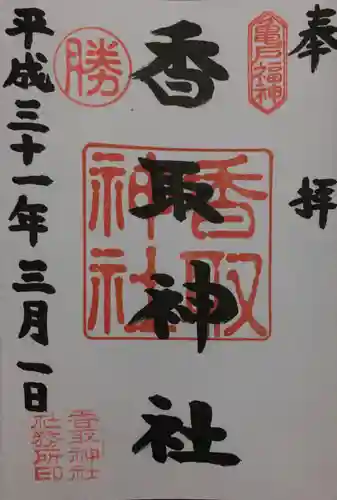 奉拝
亀戸福神
香取神社
香取神社
勝
香取神社
社務所印
平成三十一年三月一日